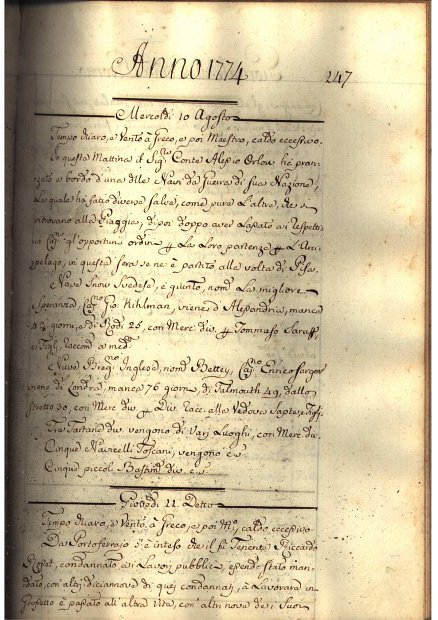 Anno 1774
247
Mercoldi 10 Agosto
Tempo chiaro, e Vento à Greco, e poi Maestro, caldo eccessivo.
In questa Mattina il Sig.re Conte Alessio Orlow hà pran-
zato a bordo d'una delle Navi da Guerra di sua Nazione,
La quale hà fatto diverse salve, come pure L'altre, che si
ritrovano alla Spiaggia, di poi doppo aver Lasciato ai respetti-
vi Cap.ni gl'opportuni ordini p La Loro partenza p L'Arci-
pelago, in questa sera se ne è partito alla volta di Pisa.
Nave Snow Svedese, è giunto, nom.a La migliore
Speranza, Cap.no Gio Hihlman, viene d'Alessandria, manca
giorni, e di Rodi 25, con Merc. div. p Tommaso
racconì a med.
Nave Brig.no Inglese, nom.a Bettey, Cap.no Enrico
viene di Londra, manca 76 giorni, di Falmouth 49, dallo
stretto 30, con Merc. div. p Div. racc. alla Vedova
Tre Tartane div. vengono di Varj Luoghi, con Merc. div.
Cinque Navicelli Toscani, vengono c.s.
Cinque piccol. Bastim.ti div. c.s.
Giovedi 11. Detto
Tempo chiaro, e Vento, à Greco, e poi M.o, caldo eccessivo
Da Portoferrajo si è inteso che il fù Tenente Riccardo
condannato ai Lavori pubblici, essendo stato man-
dato, con altri diciannove di quei condannati, à Lavorare in
Grosseto è passato all'altra Vita, con altri nove de i Suoi